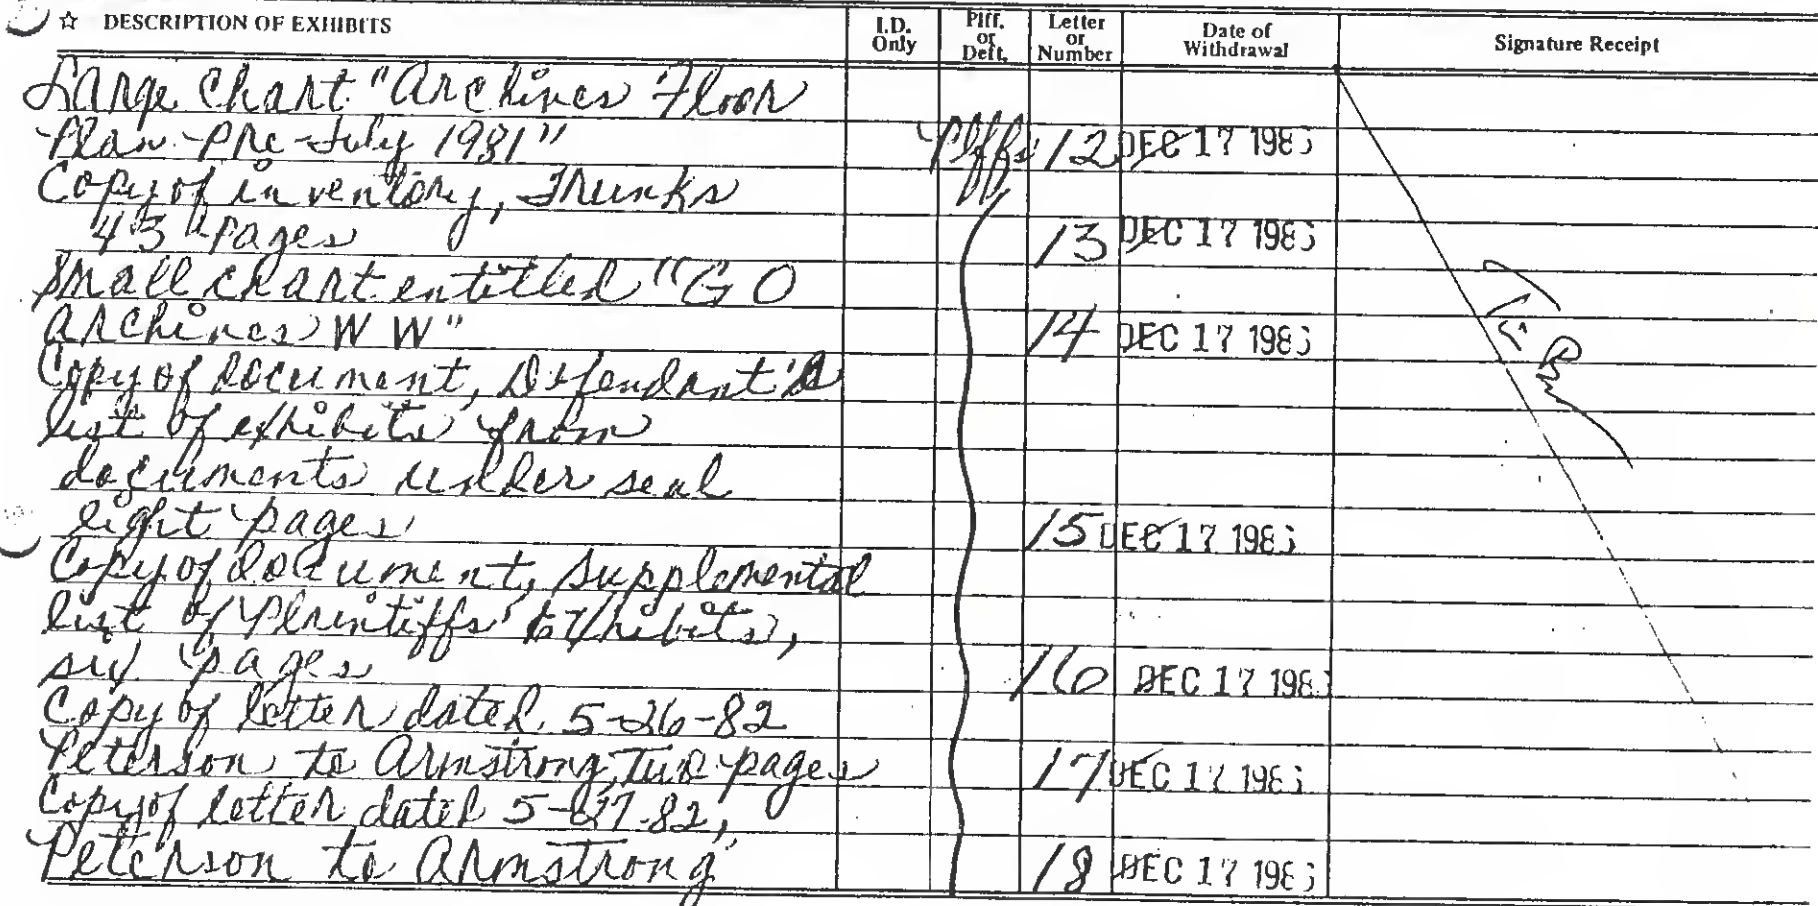 ☆ DESCRIPTION OF EXHIBITS I.D. Only Plff. or Deft. Letter or Number Date of Withdrawal Signature Receipt
Large Chart "Archives Floor
Plan-Pre-July 1981" Plffs 12 DEC 17 198
Copy of inventory, Trunks
43 pages 13 DEC 17 198
Small chart entitled "G O
Archives W W" 14 DEC 17 198
Copy of document, Defendant's
list of exhibits from
documents under seal
eight pages 15 DEC 17 198
Copy of document, Supplemental
list of Plaintiffs' Exhibits,
six pages 16 DEC 17 198
Copy of letter dated 5-26-82
Peterson to Armstrong, Two pages 17 DEC 17 198
Copy of letter dated 5-27-82,
Peterson to Armstrong 18 DEC 17 198